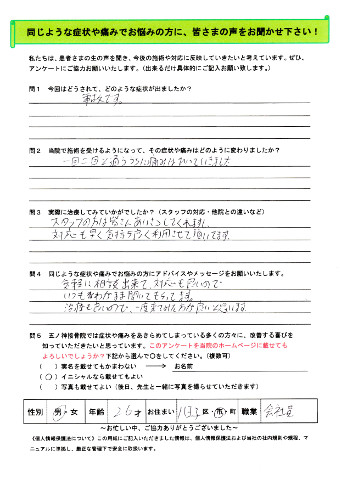 同じような症状や痛みでお悩みの方に、皆さまの声をお聞かせ下さい！
私たちは、患者さまの生の声を聞き、今後の施術や対応に反映していきたいと考えています。ぜひ、
アンケートにご協力お願いいたします。（出来るだけ具体的にご記入お願い致します。）
問１ 今回はどうされて、どのような症状が出ましたか？
事故です。
問２ 当院で施術を受けるようになって、その症状や痛みはどのように変わりましたか？
一回二回と通うつちに痛みは
問３ 実際に治療してみていかがでしたか？（スタッフの対応・他院との違いなど）
スタッフの方は皆さんあいさつしてくれますし、
対応も早く気持ち良く利用させて頂いてます。
問４ 同じような症状や痛みでお悩みの方にアドバイスやメッセージをお願いします。
気軽に相談出来て、対応も良いので
いつもわがまま聞いてもらってます。
治療も良いので、一度来てみた方が良いと思います。
問５ 五ノ神接骨院では症状や痛みをあきらめてしまっている多くの方々に、改善する喜びを
知っていただきたいと思っています。このアンケートを当院のホームページに載せても
よろしいでしょうか？下記から選んで〇をしてください。（複数可）
（ ）実名を載せてもかまわない → お名前
（〇）イニシャルなら載せてもよい
（ ）写真も載せてよい（後日、先生と一緒に写真を撮らせていただきます）
性別 男・女 年齢 26才 お住まい 区・市・町 職業 会社員
～お忙しい中、ご協力ありがとうございました～
《個人情報保護法について》この用紙にご記入いただきました情報は、個人情報保護法および当社の社内規則や規程、マ
ニュアルに準拠し、厳正な管理下で安全に取扱います。